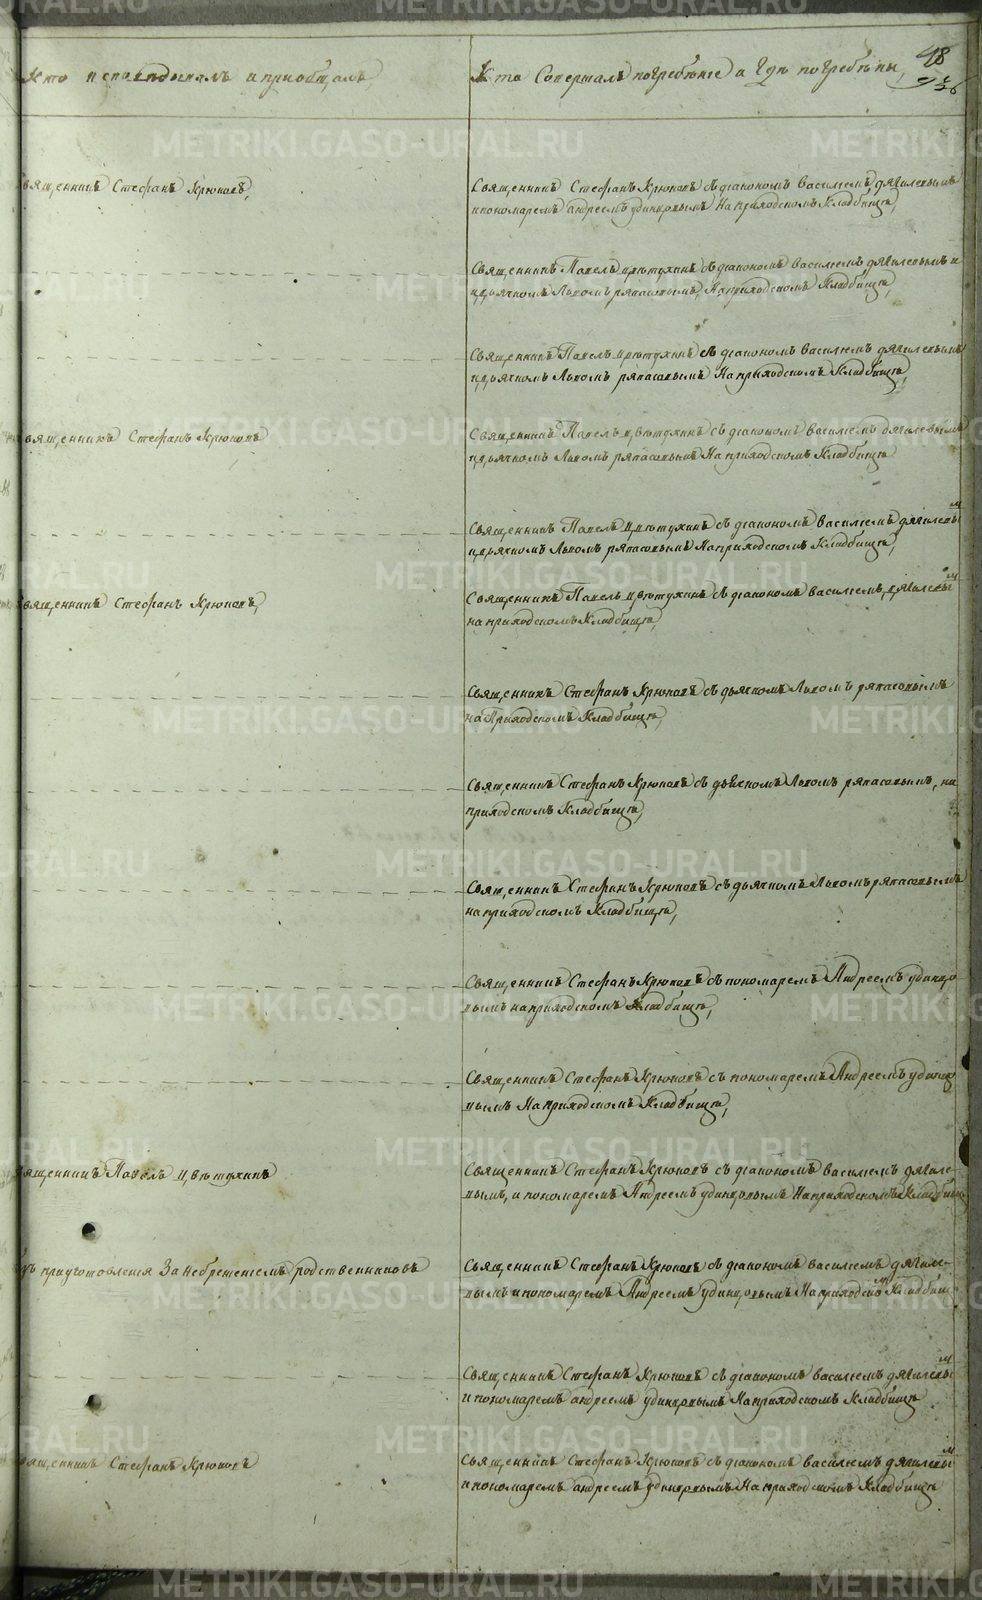 Кто исповѣдывалъ и пріобщалъ,
Кто Совершалъ погребѣніе и Гдѣ погребѣны,
48
Священникъ Стефанъ Крюковъ,
Священникъ Стефанъ Крюковъ съ діакономъ василіемъ дягилевымъ
и пономаремъ андреемъ удинцовымъ На приходскомъ Кладбищѣ,
Священникъ Павелъ цвѣтухинъ съ діакономъ василіемъ дягилевымъ и
и дьячкомъ Львомъ ряпасовымъ, На приходскомъ Кладбищѣ,
Священникъ Павелъ цвѣтухинъ съ діакономъ василіемъ дягилевымъ
и дьячкомъ Львомъ ряпасовымъ На приходскомъ Кладбищѣ,
Священникъ Стефанъ Крюковъ
Священникъ Павелъ цвѣтухинъ съ діакономъ василіемъ дягилевымъ
и дьячкомъ Львомъ ряпасовымъ На приходскомъ Кладбищѣ
Священникъ Павелъ Цвѣтухинъ съ діакономъ василіемъ дягилевым
и дьячкомъ Львомъ ряпасовымъ На приходскомъ Кладбищѣ,
Священникъ Стефанъ Крюковъ,
Священникъ Павелъ цвѣтухинъ съ діакономъ василіемъ, дягилевым
на приходскомъ Кладбищѣ,
Священникъ Стефанъ Крюковъ съ дьячкомъ Львомъ ряпасовымъ
на Приходскомъ Кладбищѣ,
Священникъ Стефанъ Крюковъ съ дьячкомъ Львомъ ряпасовымъ, на
приходскомъ Кладбищѣ,
Священникъ Стефанъ Крюковъ съ дьячкомъ Львомъ ряпасовымъ
на приходскомъ Кладбищѣ,
Священникъ Стефанъ Крюковъ съ пономаремъ Андреемъ удинцо
вымъ на приходскомъ Кладбищѣ,
Священникъ Стефанъ Крюковъ съ пономаремъ Андреемъ удинцо
вымъ На приходскомъ Кладбищѣ,
Священникъ Павелъ Цвѣтухинъ
Священникъ Стефанъ Крюковъ съ діакономъ василіемъ дягиле-
вымъ, и пономаремъ Андреемъ удинцовымъ На приходскомъ Кладбищ
приуготовленія За небреженіемъ родственниковъ
Священникъ Стефанъ Крюковъ съ діакономъ василіемъ дягиле-
вымъ и пономаремъ Андреемъ удинцовымъ На приходском Кладбищ
Священникъ Стефанъ Крюковъ съ діакономъ василіемъ дягилевым
и пономаремъ андреемъ удинцовымъ На приходскомъ Кладбищѣ
Священникъ Стефанъ Крюковъ
Священникъ Стефанъ Крюковъ съ діакономъ василіемъ дягилевым
и пономаремъ андреемъ удинцовымъ На приходскомъ Кладбищѣ
METRIKI.GASO-URAL.RU